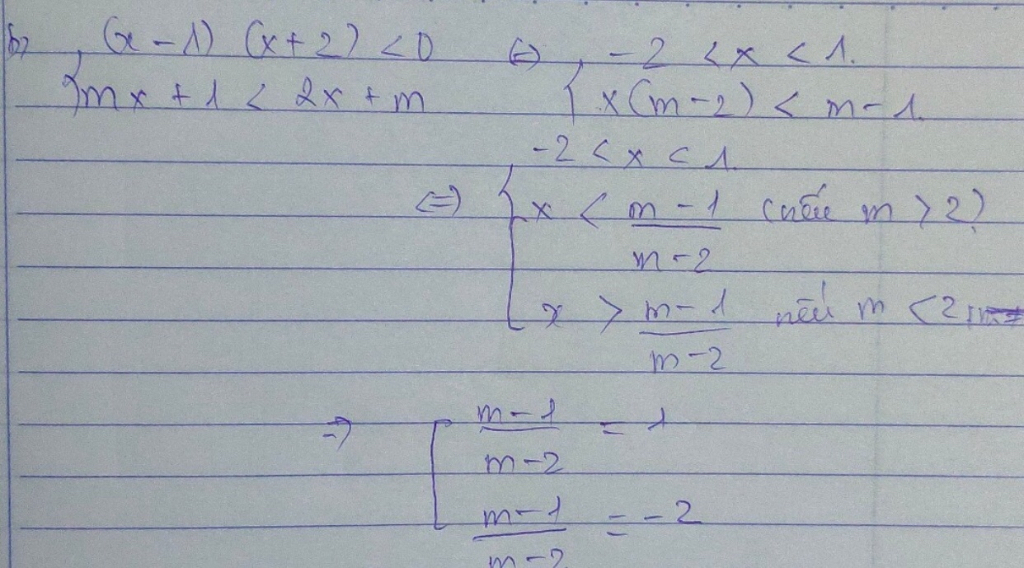 b) { (x - 1) (x + 2) < 0 (=) { -2 < x < 1.
mx + 1 < 2x + m x(m - 2) < m - 1.
(=) { -2 < x < 1.
[ x < (m - 1)/(m - 2) (nếu m > 2)
x > (m - 1)/(m - 2) nếu m < 2
=> [ (m - 1)/(m - 2) = 1
(m - 1)/(m - 2) = -2